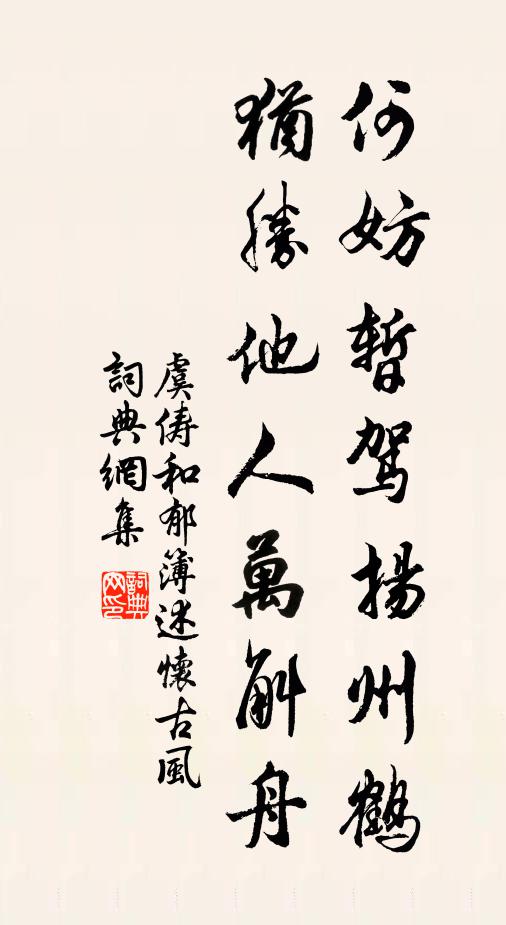 何妨暫駕揚州鶴
猶勝他人萬斛舟
虞儔和郁簿述懷古風
詞典網集
詞典网印